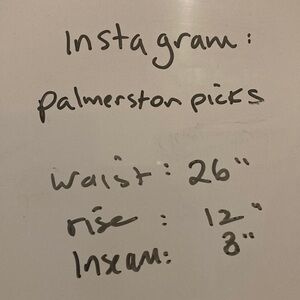 Instagram:
palmerston picks
waist: 26"
rise: 12"
Inseam: 3"